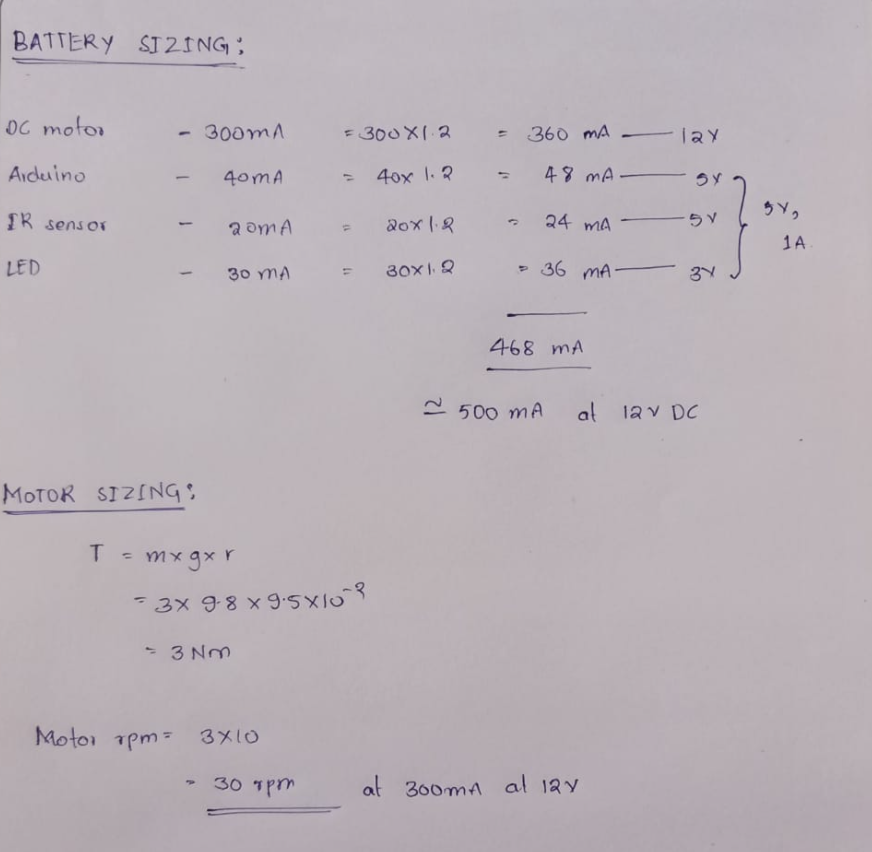 BATTERY SIZING:
DC motor - 300mA = 300X1.2 = 360 mA — 12V
Arduino - 40mA = 40x 1.2 = 48 mA — 5V
IR sensor - 20mA = 20x1.2 = 24 mA — 5V
LED - 30 mA = 30X1.2 = 36 mA — 3V
5V,
1A
468 mA
≃ 500 mA at 12V DC
MOTOR SIZING:
T = m x g x r
= 3X 9.8 x 9.5X10⁻²
= 3 Nm
Motor rpm = 3X10
= 30 rpm at 300mA at 12V